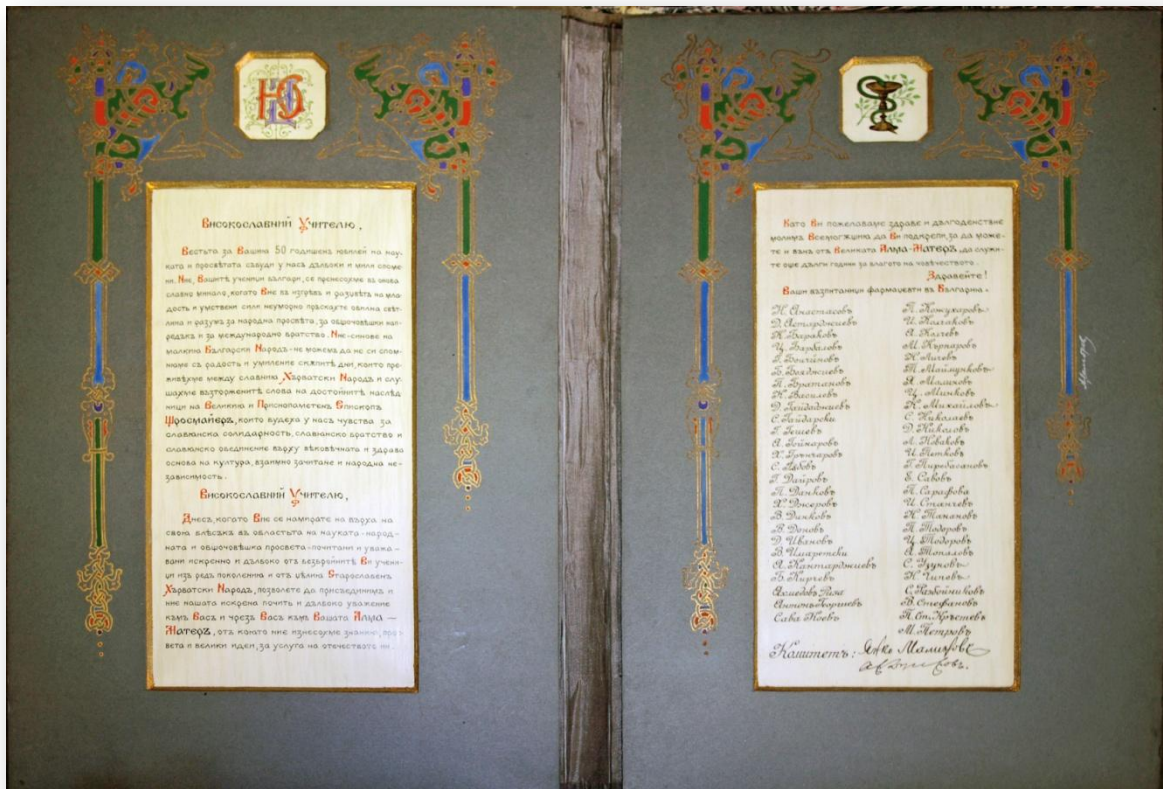 Високославний Учителю,
Вестьта за Вашия 50 годишенъ юбилей на нау-
ката и просвѣтата събуди у насъ дълбоки и мили споме-
ни. Ние, Вашитѣ ученици българи, се пренесохме въ онова
славно минало, когато Вие въ изгрѣвъ и разцвѣтъ на мла-
дость и умствени сили неуморно пръскахте обилна свѣт-
лина и разумъ за народна просвѣта, за общочовѣшки нап-
редъкъ и за международно братство. Ние-синове на
малкия Български Народъ-не можемъ да не си спом-
нюме съ радость и умиление скѫпитѣ дни, които пре-
живѣхме между славния Хърватски Народъ и слу-
шахме възторженитѣ слова на достойнитѣ наслед
ници на Великия и Приснопаметенъ Епископъ
Щросмайеръ, които будеха у насъ чувства за
славянска солидарность, славянско братство и
славянско обединение върху вѣковѣчната и здрава
основа на култура, взаимно зачитане и народна не-
зависимость.
Високославний Учителю,
Днесъ, когато Вие се намирате на върха на
своя влѣзъкъ въ областьта на науката-народ-
ната и общочовѣшка просвета-почитани и уважа-
вани искренно и дълбоко отъ безбройнитѣ Ви учени-
ци изъ редъ поколения и отъ цѣлия Старославенъ
Хърватски Народъ, позволете да присъединимъ и
ние нашата искрена почить и дълбоко уважение
къмъ Васъ и чрезъ Васъ къмъ Вашата Алма —
Матеръ, отъ която ние изнесохме знания,
вета и велики идеи, за услуга на отечеството ни.
Като Ви пожелаваме здраве и дългоденствие
молимъ Всемогѫщия да Ви подкрепи, за да може-
те и вънъ отъ Великата Алма-Матеръ, да служи-
те още дълги години за благото на човѣчеството.
Здравейте!
Ваши възпитаници фармацевти въ България.
Н. Анастасовъ
Д. Астарджиевъ
Н. Бараковъ
Ц. Бърбаловъ
Г. Бончиновъ
Б. Бляджиевъ
П. Братановъ
Н. Василевъ
Д. Гайдаджиевъ
С. Гайдарски
Г. Гешевъ
А. Гойнаровъ
Х. Грънчаровъ
С. Гъбовъ
Г. Даировъ
П. Данковъ
Х. Джеровъ
В. Динковъ
В. Доновъ
Д. Ивановъ
В. Имаретски
А. Кантарджиевъ
Б. Кирчевъ
Ахмедовъ Рама
Антонъ Георгиевъ
Сава Ноевъ
П. Кожухаровъ
И. Колчаковъ
А. Кьнчевъ
М. Кърпаровъ
Н. Личевъ
Т. Маймунковъ
Я. Малиновъ
Ц. Минковъ
К. Михайловъ
С. Николаевъ
Д. Николовъ
Л. Новаковъ
И. Петковъ
Г. Пиребасановъ
Е. Савовъ
П. Сарафова
И. Станчевъ
Н. Танановъ
П. Тодоровъ
Ц. Тодоровъ
А. Топаловъ
С. Узуновъ
Н. Чиповъ
С. Разбойниковъ
В. Стефановъ
П. Ст. Кръстевъ
М. Петровъ
Комитетъ: